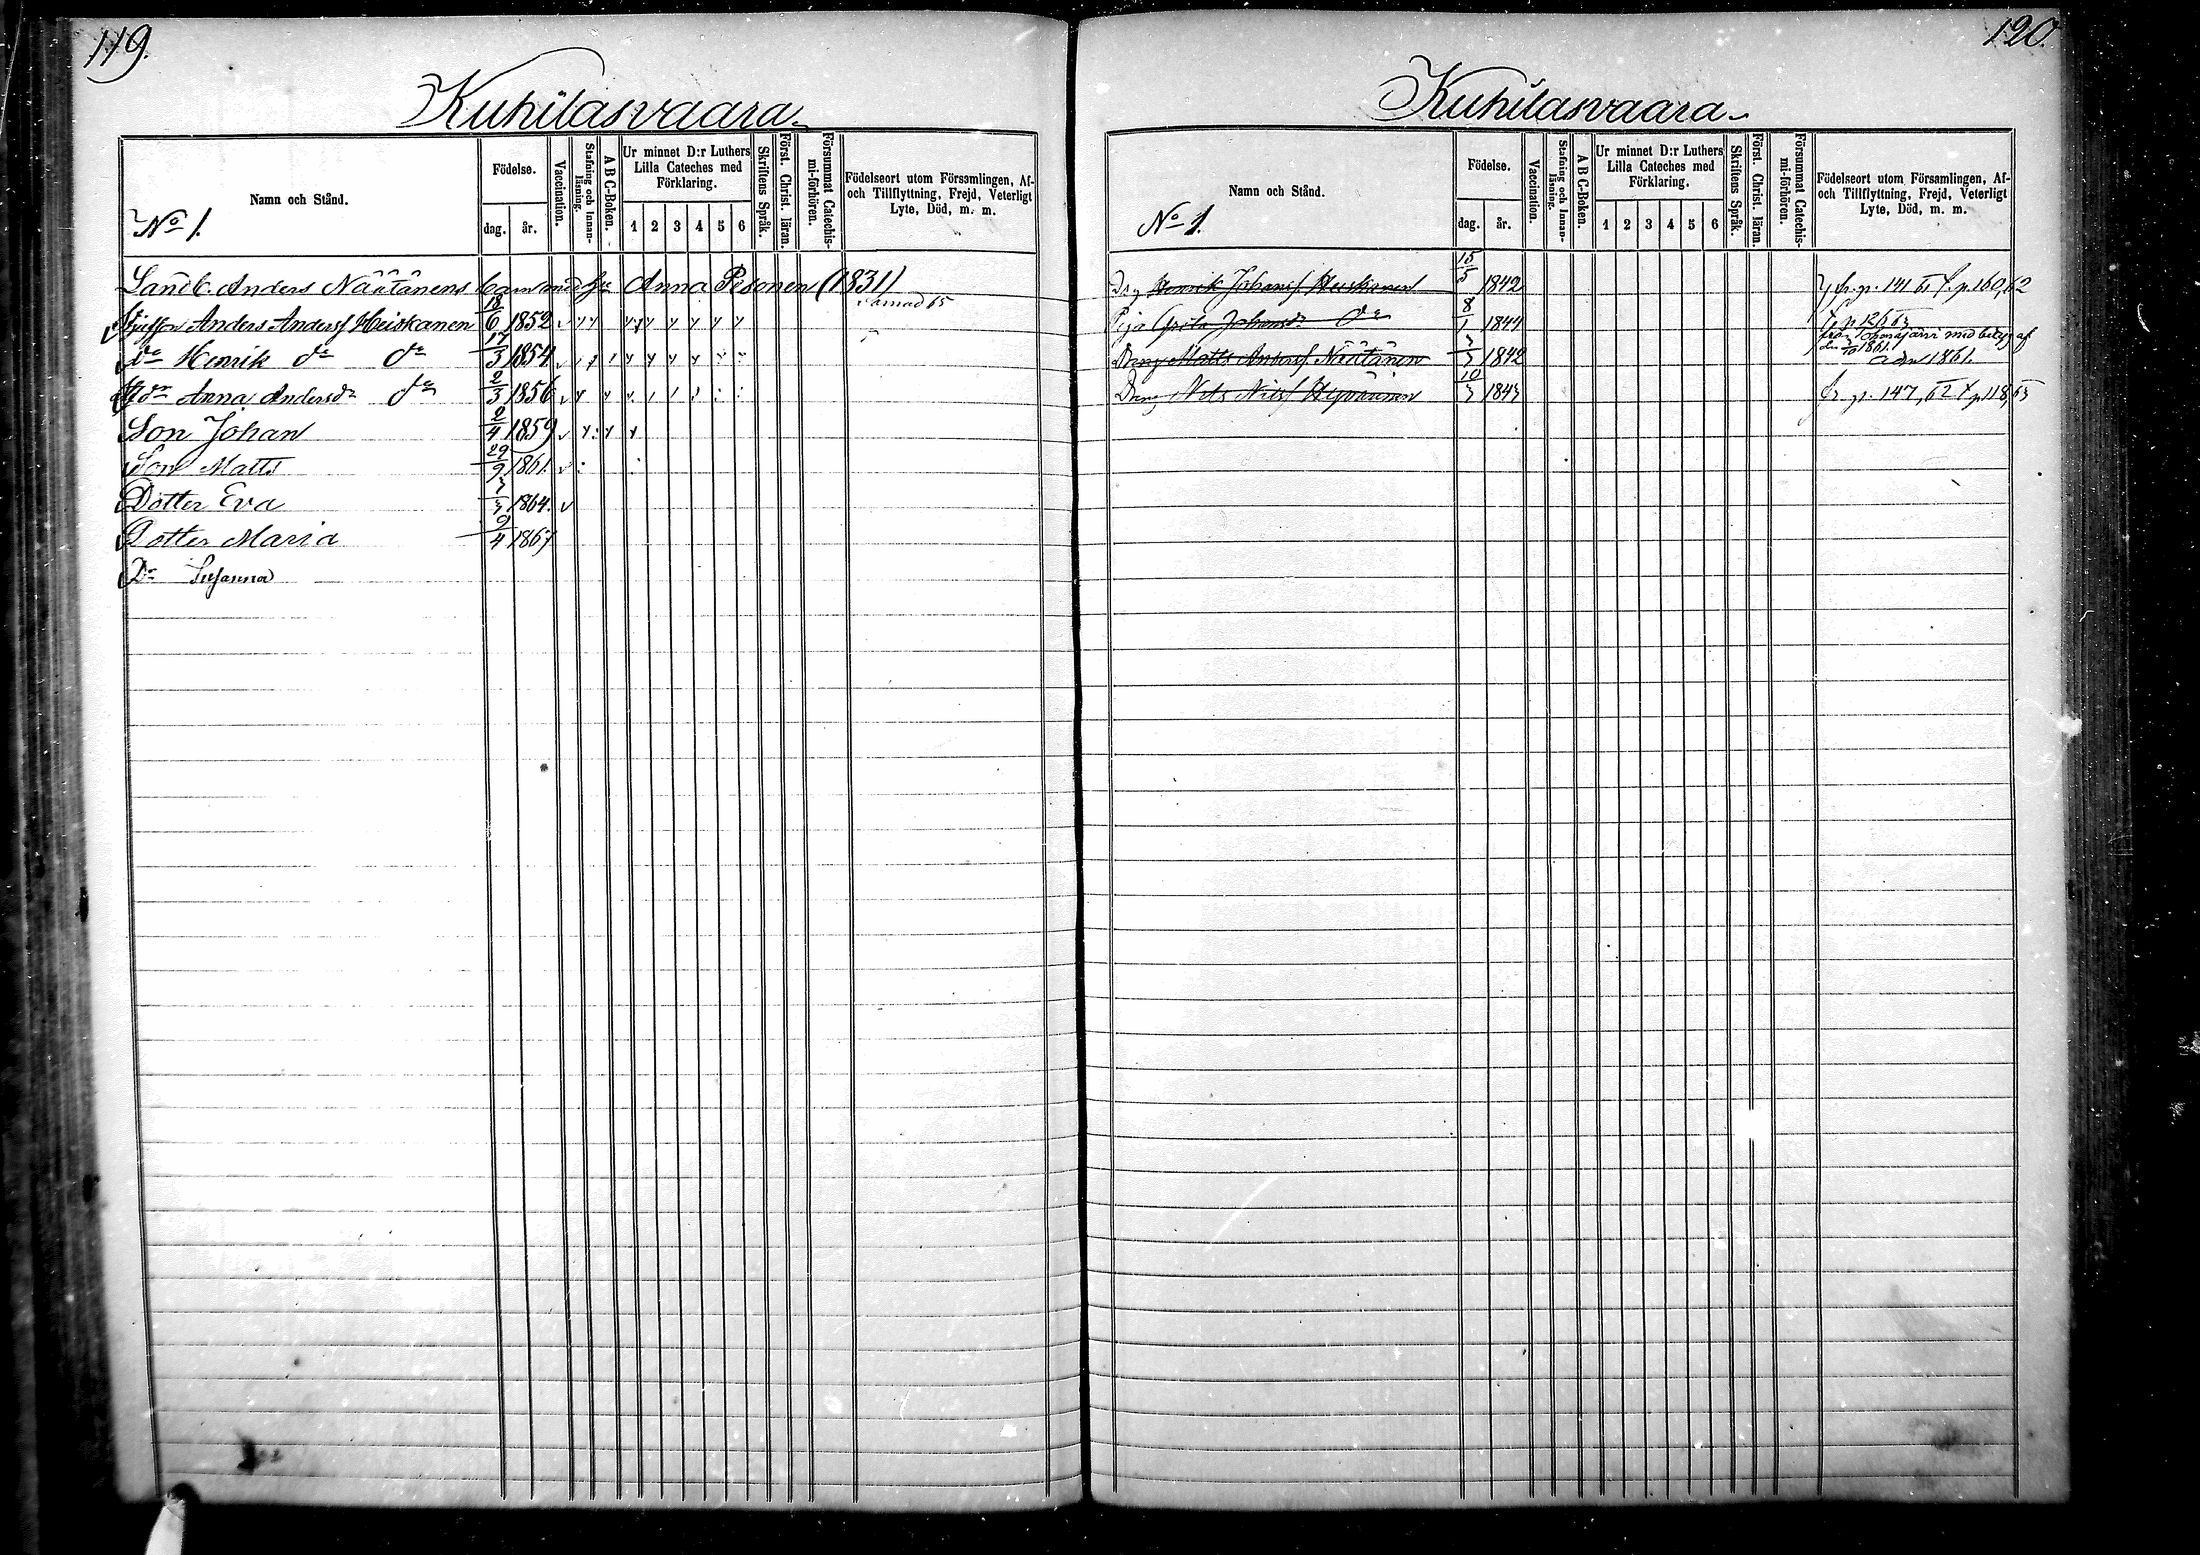 119.
Kuhilasvaara.
Namn och Stånd.
No 1.
Födelse.
dag. år.
Vaccination.
Stafning och Innanläsning.
A B C-Boken.
Ur minnet D:r Luthers Lilla Cateches med Förklaring.
1 2 3 4 5 6
Skriftens Språk.
Först. Christ. läran.
Försummat Catechismi-förhören.
Födelseort utom Församlingen, Af- och Tillflyttning, Frejd, Veterligt Lyte, Död, m. m.
Landb. Anders Näätänens barn med Anna Pesonen (1831)
Anders Anderss Heiskanen 18/6 1852
Do Henrik do do 17/3 1854
Anna Andersdr do 2/3 1856
Son Johan 2/4 1859
Son Matts 29/9 1861
Dotter Eva 1864.
Dotter Maria 9/4 1867
Do Susanna
120.
Kuhilasvaara.
Namn och Stånd.
No 1.
Födelse.
dag. år.
Vaccination.
Stafning och Innanläsning.
A B C-Boken.
Ur minnet D:r Luthers Lilla Cateches med Förklaring.
1 2 3 4 5 6
Skriftens Språk.
Först. Christ. läran.
Försummat Catechismi-förhören.
Födelseort utom Församlingen, Af- och Tillflyttning, Frejd, Veterligt Lyte, Död, m. m.
Drg Henrik Johanss Heiskanen 15/5 1842 fr. p. 141 61 t. p. 160, 62
Piga Greta Johansdr do 8/1 1844
Dreng Matts Anderss Näätänen 1842 1861.
Dreng Nils Nilss 10 fr p. 147, 62 t p 118, 65